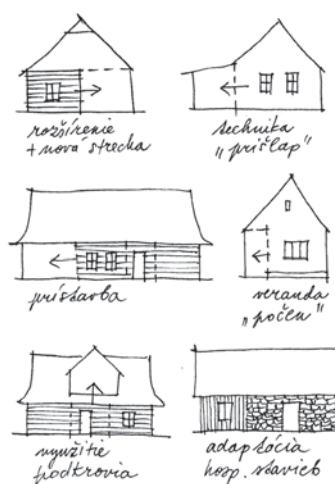 rozšírenie
+ nová strecha
technika
"príšlap"
prístavba
veranda
"počen"
využitie
podkrovia
adaptócia
hosp. stavieb